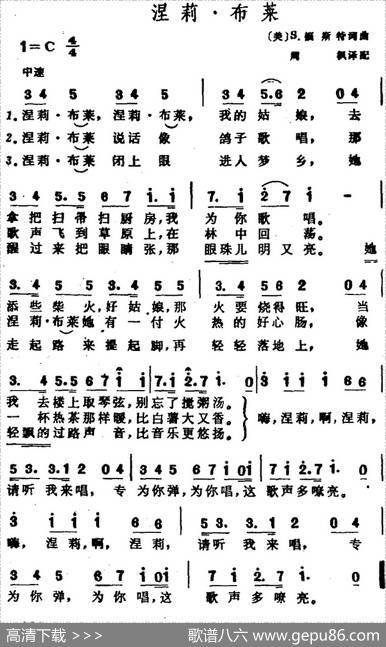 涅莉·布莱
1=C 4/4
〔美〕S.福斯特词曲
周 枫译配
中速
3 4 5 3 4 5 3 4 5.6 2 0 4
1.涅莉·布莱，涅莉·布莱，我的姑娘，去
2.涅莉·布莱说话像鸽子歌唱，那
3.涅莉·布莱闭上眼进入梦乡，她
3 4 5.5 6 7 i.i 7.i 2 7 i -
拿把扫帚扫厨房，我为你歌唱。
歌声飞到草原上，在林中回荡。
醒过来把眼睛张，那眼珠儿明又亮。她
3. 4 5. 5 3 4 5. 5 3. 4 5. 6 2 0 4
添些柴火，好姑娘，那火要烧得旺，当
涅莉·布莱她有一付火热的好心肠，像
走起路来提起脚，再轻轻落地上，她
3. 4 5.5 6 7 i i 7.i 2.7 i. 0 3 i i i 6 6
我去楼上取琴弦，别忘了搅粥汤。
一杯热茶那样暖，比白薯大又香。
轻飘的过路声音，比音乐更悠扬。
嗨，涅莉，啊，涅莉，
5 3 3.1 2 0 4 3 4 5 6 7 i 0i 7 i 2.7 i. 0
请听我来唱，专为你弹，为你唱，这歌声多嘹亮。
3 i i i 6 6 5 3. 3.1 2 0 4
嗨，涅莉，啊，涅莉，请听我来唱，专
3 4 5 6 7 i 0i 7 i 2.7 i 0
为你弹，为你唱，这歌声多嘹亮。
高清下载 >>>
歌谱八六 www.gepu86.com